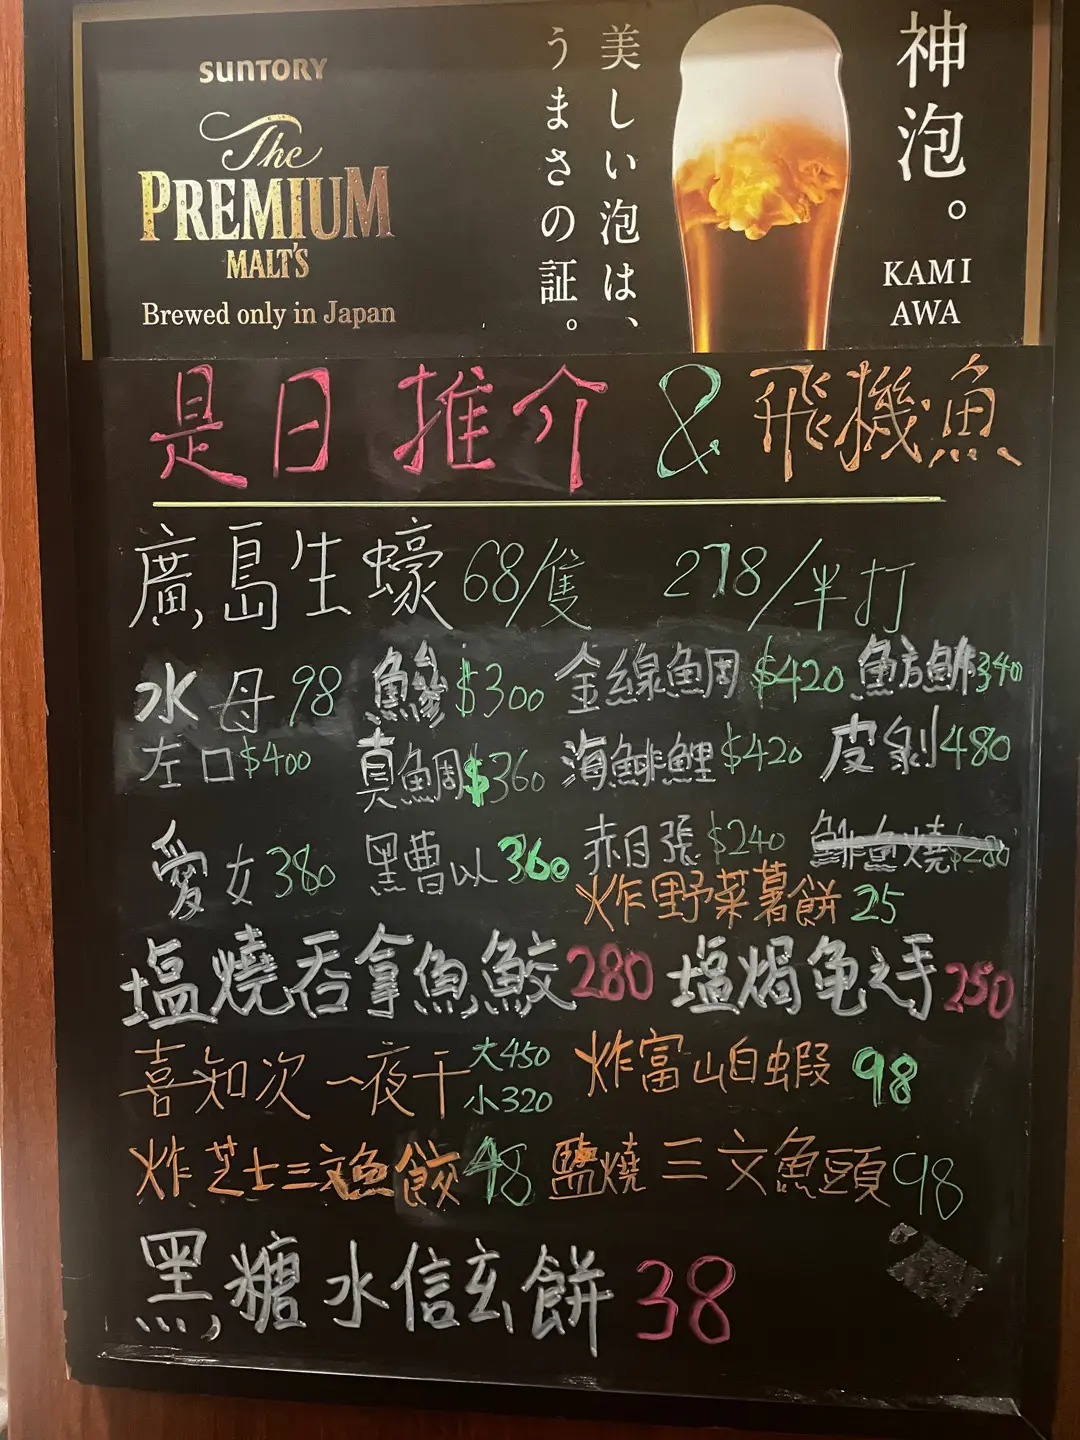 SUNTORY
The
PREMIUM
MALT'S
Brewed only in Japan
美しい泡は、
うまさの証。
神泡。
KAMI
AWA
是日推介 & 飛機魚
廣島生蠔 68/隻 278/半打
水母 98 鰺 $300 金線鯛 $420 魴鮄 340
左口 $400 真鯛 $360 海鯡鯉 $420 皮剝 480
愛女 380 黑曹以 360 赤目張 $240 魚燒 $280
炸野菜薯餅 25
塩燒吞拿魚鮫 280 塩焗龟之手 250
喜知次一夜干 大450 小320 炸富山白蝦 98
炸芝士三文魚餃 48 鹽燒三文魚頭 98
黑糖水信玄餅 38